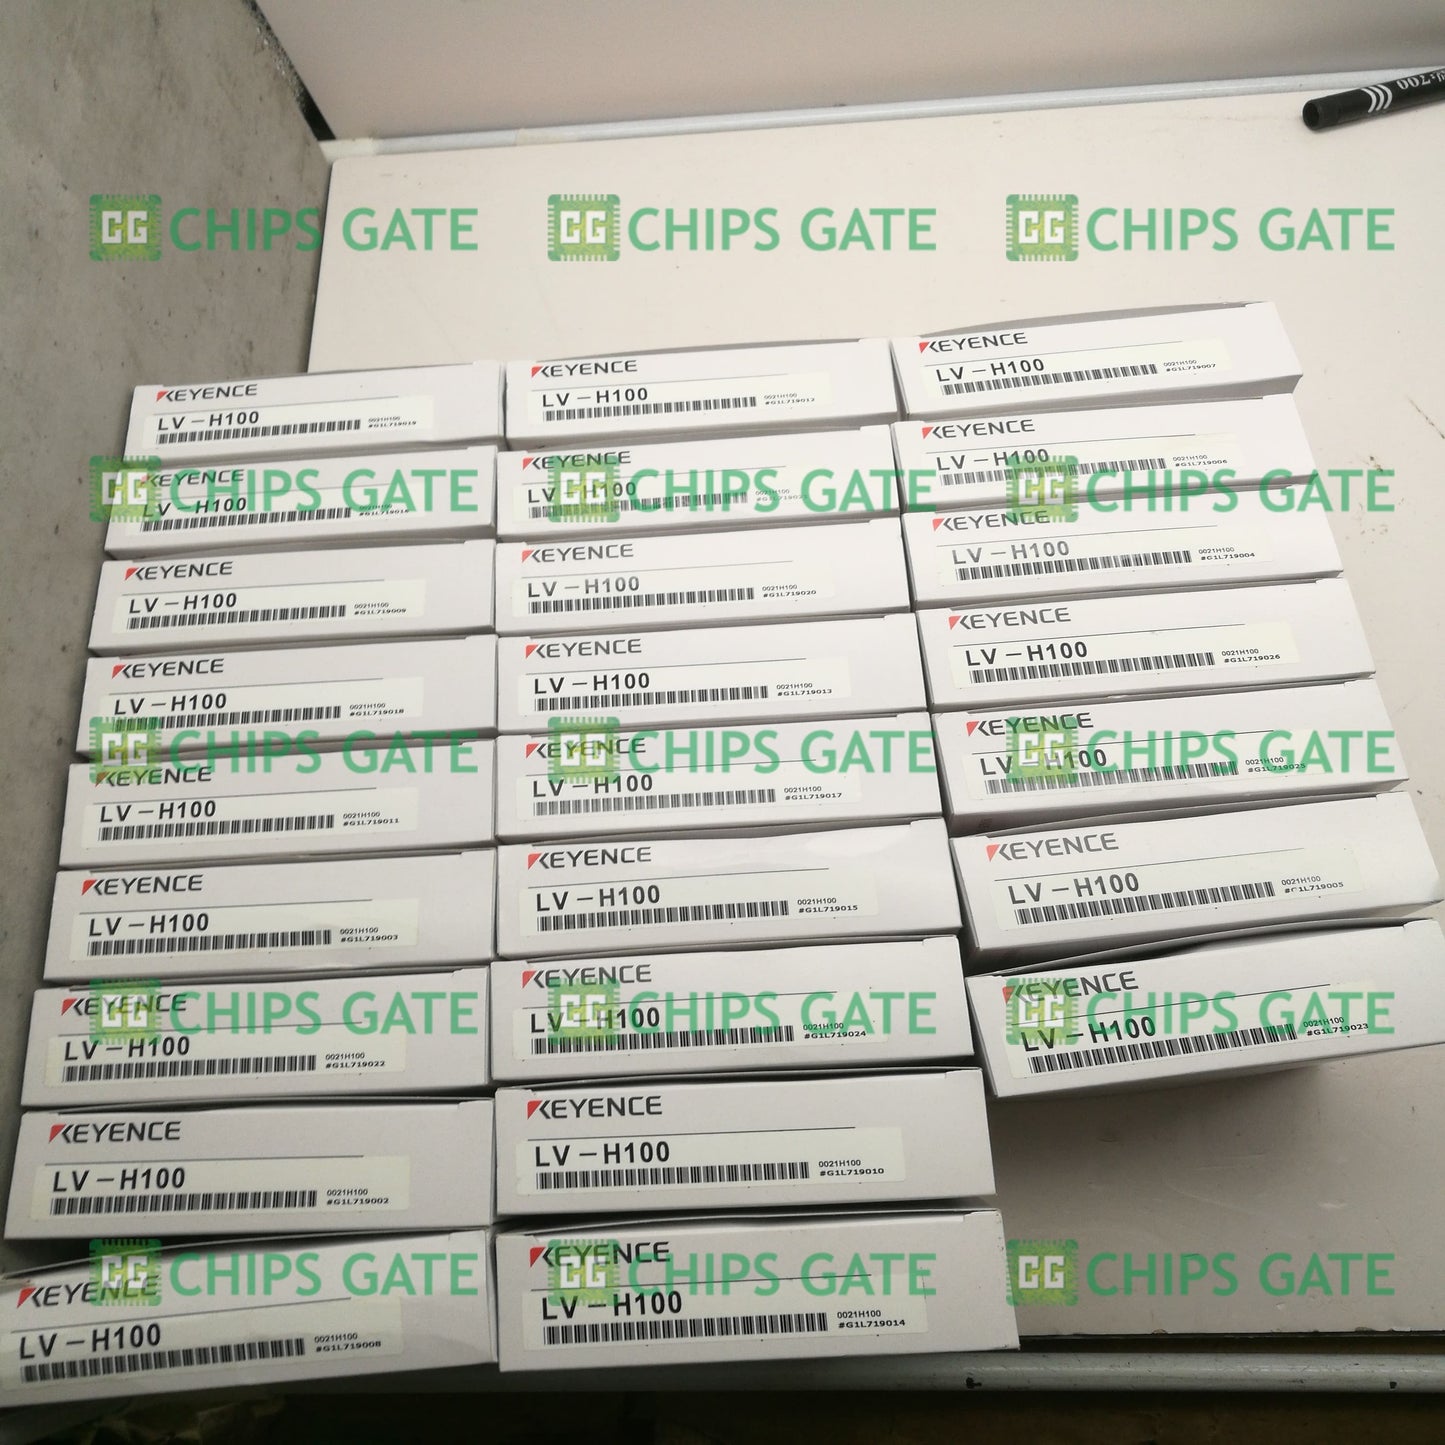 KEYENCE
LV-H100
0021H100
#G1L719019
KEYENCE
LV-H100
0021H100
#G1L719016
KEYENCE
LV-H100
0021H100
#G1L719009
KEYENCE
LV-H100
0021H100
#G1L719018
KEYENCE
LV-H100
0021H100
#G1L719011
KEYENCE
LV-H100
0021H100
#G1L719003
KEYENCE
LV-H100
0021H100
#G1L719022
KEYENCE
LV-H100
0021H100
#G1L719002
KEYENCE
LV-H100
0021H100
#G1L719008
KEYENCE
LV-H100
0021H100
#G1L719012
KEYENCE
LV-H100
0021H100
#G1L719021
KEYENCE
LV-H100
0021H100
#G1L719020
KEYENCE
LV-H100
0021H100
#G1L719013
KEYENCE
LV-H100
0021H100
#G1L719017
KEYENCE
LV-H100
0021H100
#G1L719015
KEYENCE
LV-H100
0021H100
#G1L719024
KEYENCE
LV-H100
0021H100
#G1L719010
KEYENCE
LV-H100
0021H100
#G1L719014
KEYENCE
LV-H100
0021H100
#G1L719007
KEYENCE
LV-H100
0021H100
#G1L719006
KEYENCE
LV-H100
0021H100
#G1L719004
KEYENCE
LV-H100
0021H100
#G1L719026
KEYENCE
LV-H100
0021H100
#G1L719025
KEYENCE
LV-H100
0021H100
#G1L719005
KEYENCE
LV-H100
0021H100
#G1L719023
CG CHIPS GATE CG CHIPS GATE CG CHIPS GATE
CG CHIPS GATE CG CHIPS GATE CG CHIPS GATE
CG CHIPS GATE CG CHIPS GATE CG CHIPS GATE
CG CHIPS GATE CG CHIPS GATE CG CHIPS GATE
CG CHIPS GATE CG CHIPS GATE CG CHIPS GATE